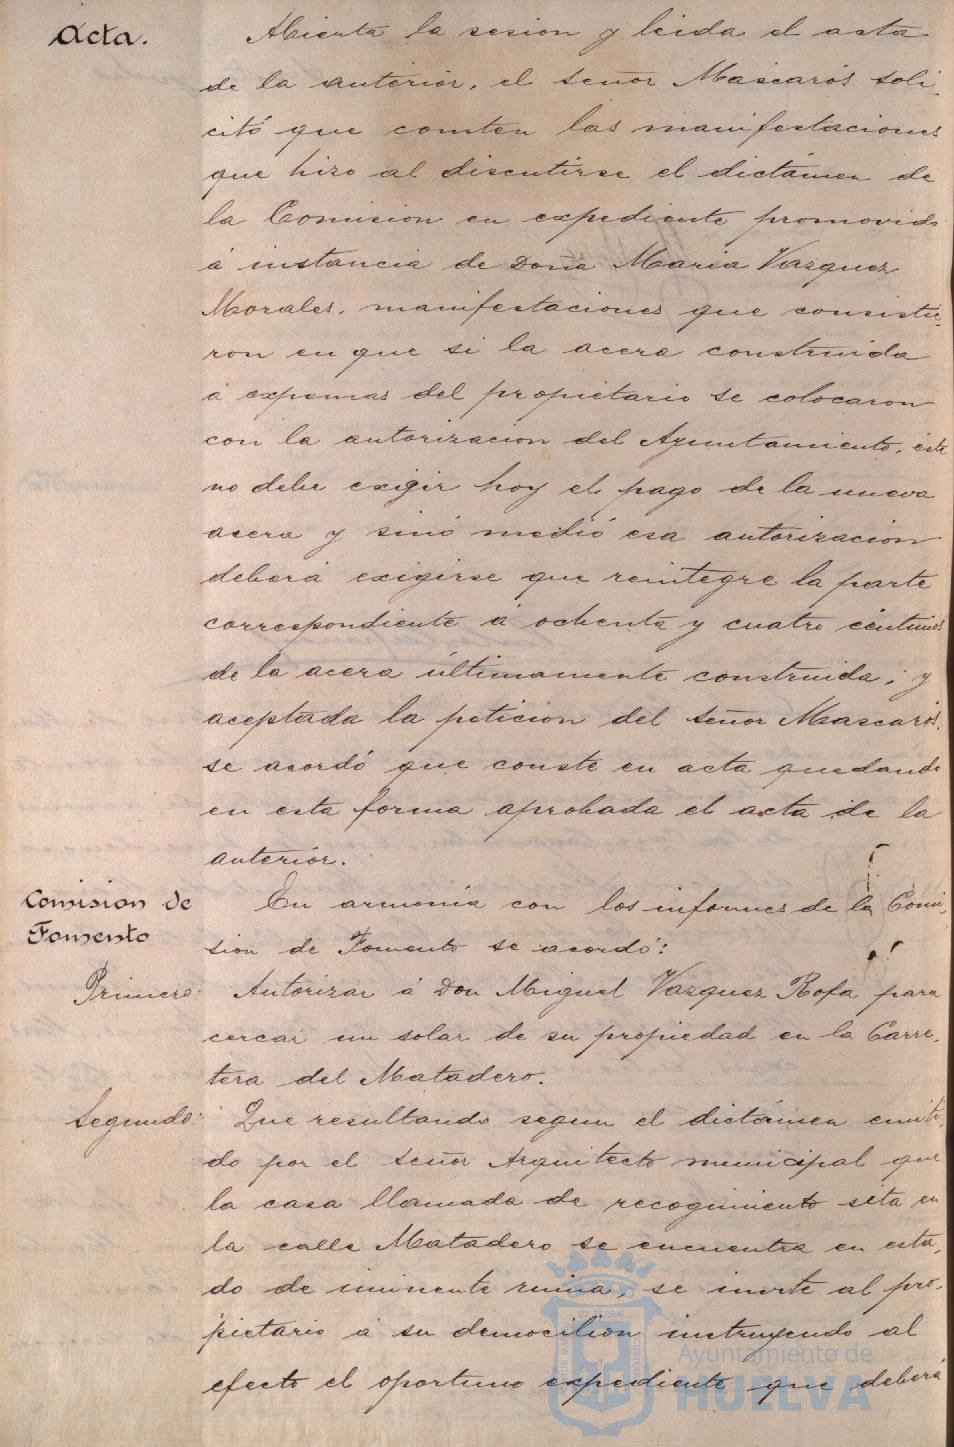 Acta. Abierta la sesion y leida el acta
de la anterior, el señor Mascarós soli-
citó que consten las manifestaciones
que hizo al discutirse el dictámen de
la Comision en expediente promovido
á instancia de Doña Maria Vazquez
Morales, manifestaciones que consistie-
ron en que si la acera construida
á expensas del propietario se colocaron
con la autorizacion del Ayuntamiento, este
no debe exigir hoy el pago de la nueva
acera y sinó medió esa autorización
deberá exigirse que reintegre la parte
correspondiente á ochenta y cuatro céntimos
de la acera últimamente construida; y
aceptada la peticion del señor Mascarós,
se acordó que conste en acta quedando
en esta forma aprobada el acta de la
anterior.
Comision de Fomento
En armonía con los informes de la Comi-
sion de Fomento se acordó:
Primero: Autorizar á Don Miguel Vazquez Rofa para
cercar un solar de su propiedad en la Carre-
tera del Matadero.
Segundo: Que resultando segun el dictámen emiti-
do por el señor Arquitecto municipal que
la casa llamada de recogimiento sita en
la calle Matadero se encuentra en esta-
do de iminente ruina, se invite al pro-
pietario á su democilion instruyendo al
efecto el oportuno expediente que deberá
Ayuntamiento de
HUELVA